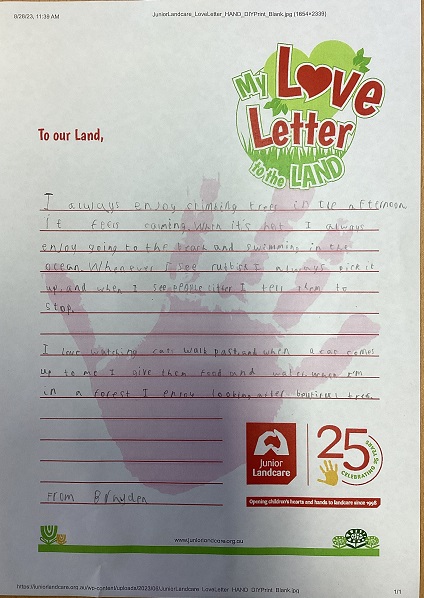 8/28/23, 11:39 AM
JuniorLandcare_LoveLetter_HAND_DIYPrint_Blank.jpg (1654×2339)
My Love
Letter
to the LAND
To our Land,
I always enjoy climbing trees in the afternoon
it feels calming. When it's hot I always
enjoy going to the beach and swimming in the
ocean. Whenever I see rubbish I always pick it
up, and when I see people litter I tell them to
stop.
I love watching cats walk past, and when a cat comes
up to me I give them food and water. When I'm
in a forest I enjoy looking after
From Brayden
Junior
Landcare
25
CELEBRATING 25 YEARS
Opening children's hearts and hands to landcare since 1998
www.juniorlandcare.org.au
https://juniorlandcare.org.au/wp-content/uploads/2023/08/JuniorLandcare_LoveLetter_HAND_DIYPrint_Blank.jpg
1/1